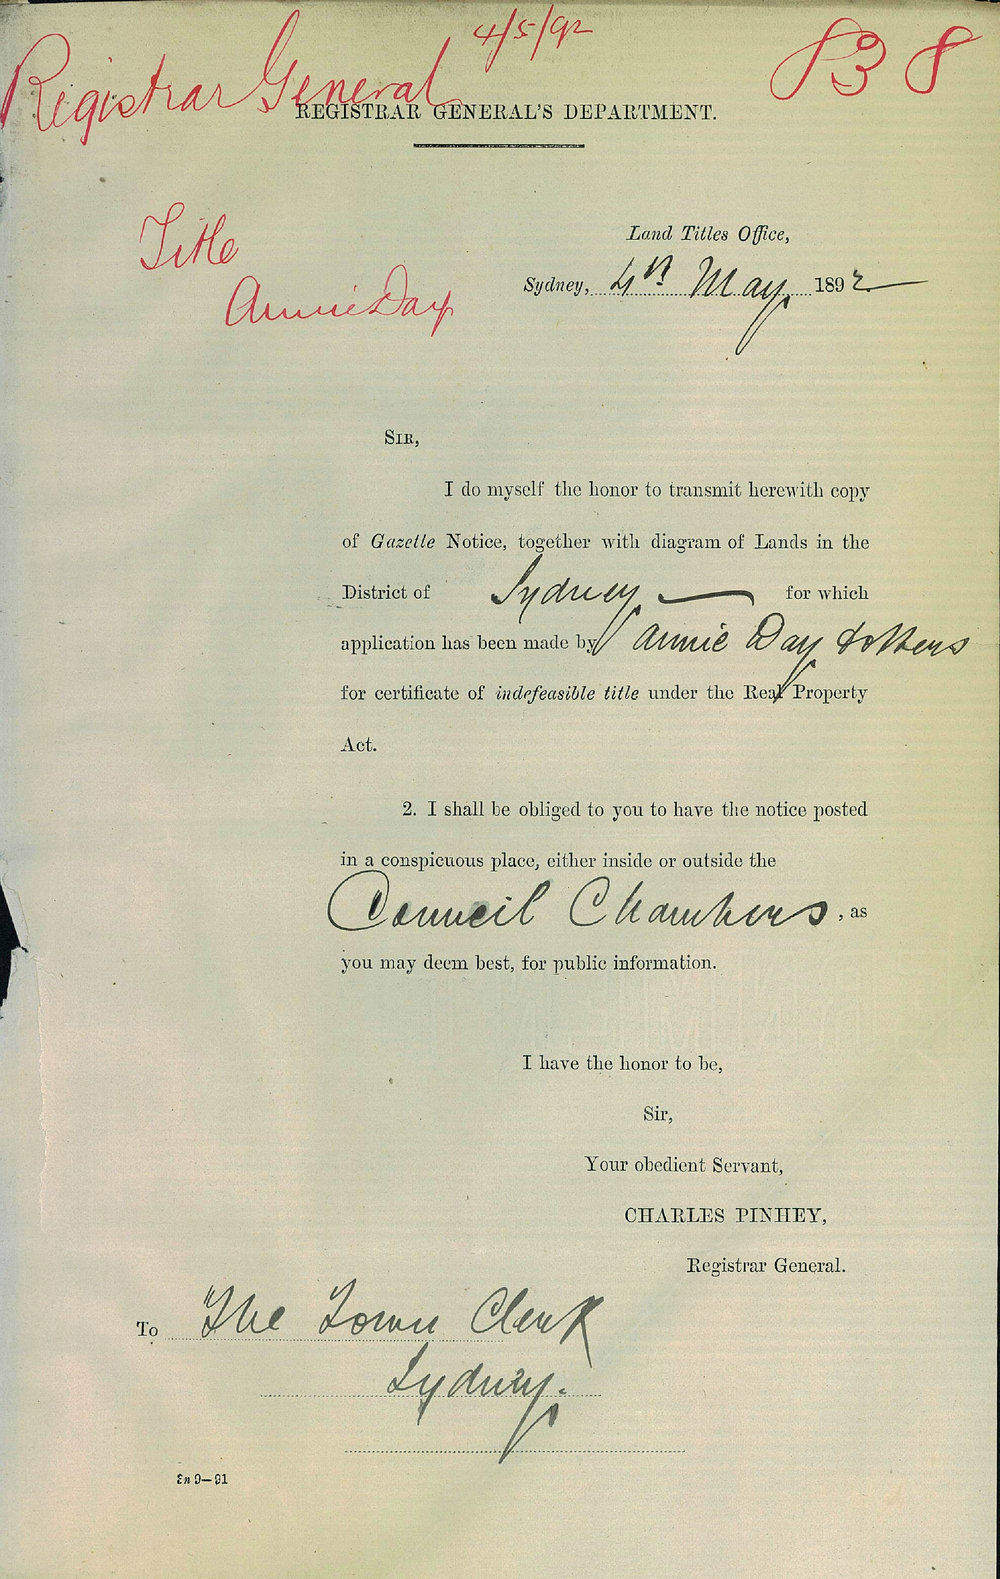 4/5/92
838
Registrar General
REGISTRAR GENERAL'S DEPARTMENT.
Title
Annie Day
Land Titles Office,
Sydney, 4th May, 1892
SIR,
I do myself the honor to transmit herewith copy
of Gazette Notice, together with diagram of Lands in the
District of Sydney — for which
application has been made by Annie Day & others
for certificate of indefeasible title under the Real Property
Act.
2. I shall be obliged to you to have the notice posted
in a conspicuous place, either inside or outside the
Council Chambers, as
you may deem best, for public information.
I have the honor to be,
Sir,
Your obedient Servant,
CHARLES PINHEY,
Registrar General.
To The Town Clerk
Sydney.
9—91